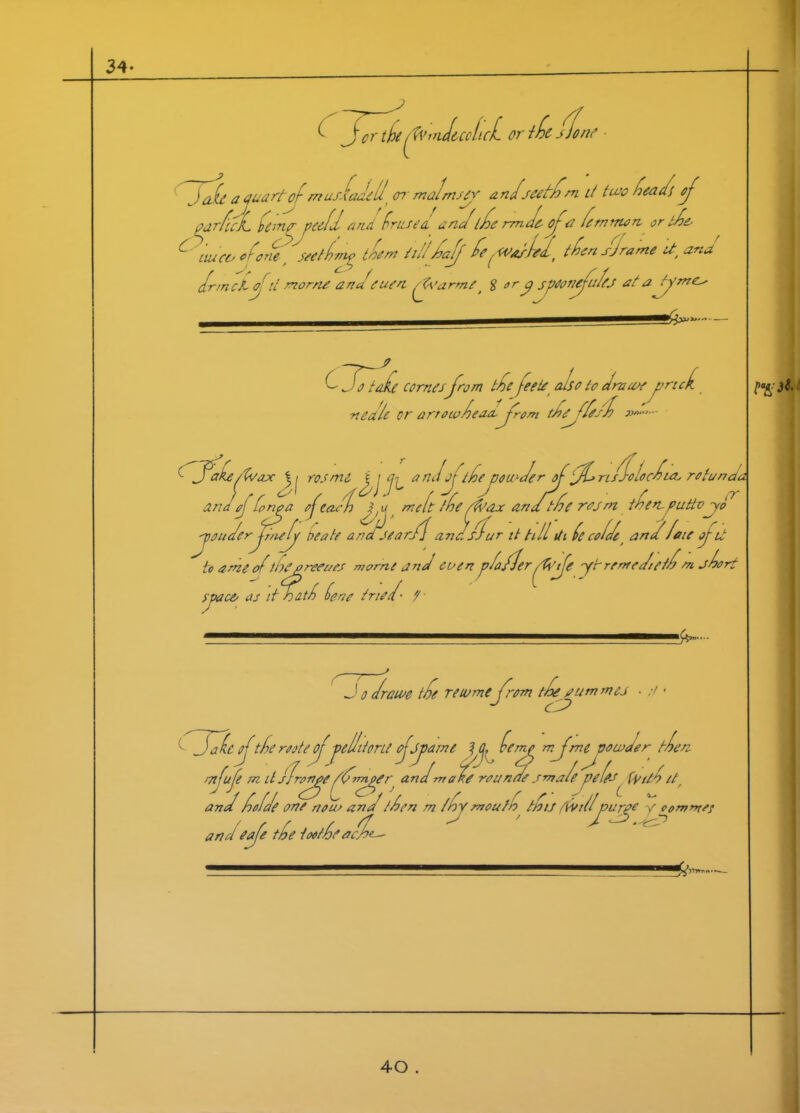 34.
For the Windecolick or the stone.
Take a quart of muskadell or malmsey and seeth in it two heads of
garlick being peeld and brused and the rinde of a lemmon or the
iuice of one, seething them till half be wasted, then straine it, and
drinck of it morne and euen warme, 8 or 9 spoonefules at a tyme
To take cornes from the feete also to drawe prick
nedle or arrowhead from the flesh
pag: 38.
Take Wax ℥j rosine ℥j and of the powder of Aristolochia rotunda
and of longa of each ʒij melt the Wax and the rosin then putto yo
pouder finely beate and searst and stur it till iti be colde, and laie of it
to anie of the greeues morne and euen plaster Wise yt remedieth in short
space as it hath bene tried.
To drawe the rewme from the gummes
Take of the roote of pellitorie of spaine being in fine powder then
infuse in it stronge Vineger and make rounde smale peles With it,
and holde one now and then in thy mouth this Will purge y gommes
and ease the toothe ache
40.